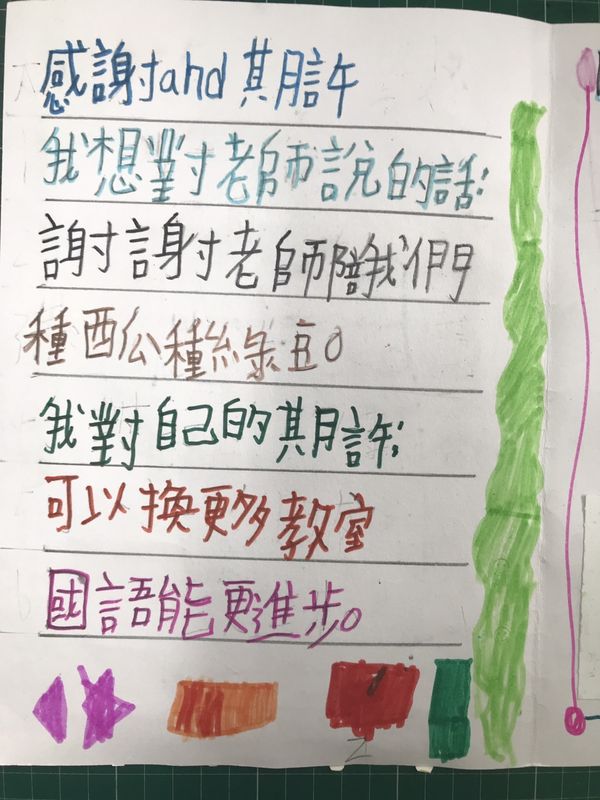 感謝and期許
我想對老師說的話:
討謝老師陪我們
種西瓜種綠豆。
我對自己的期許:
可以換更多教室
國語能更進步。